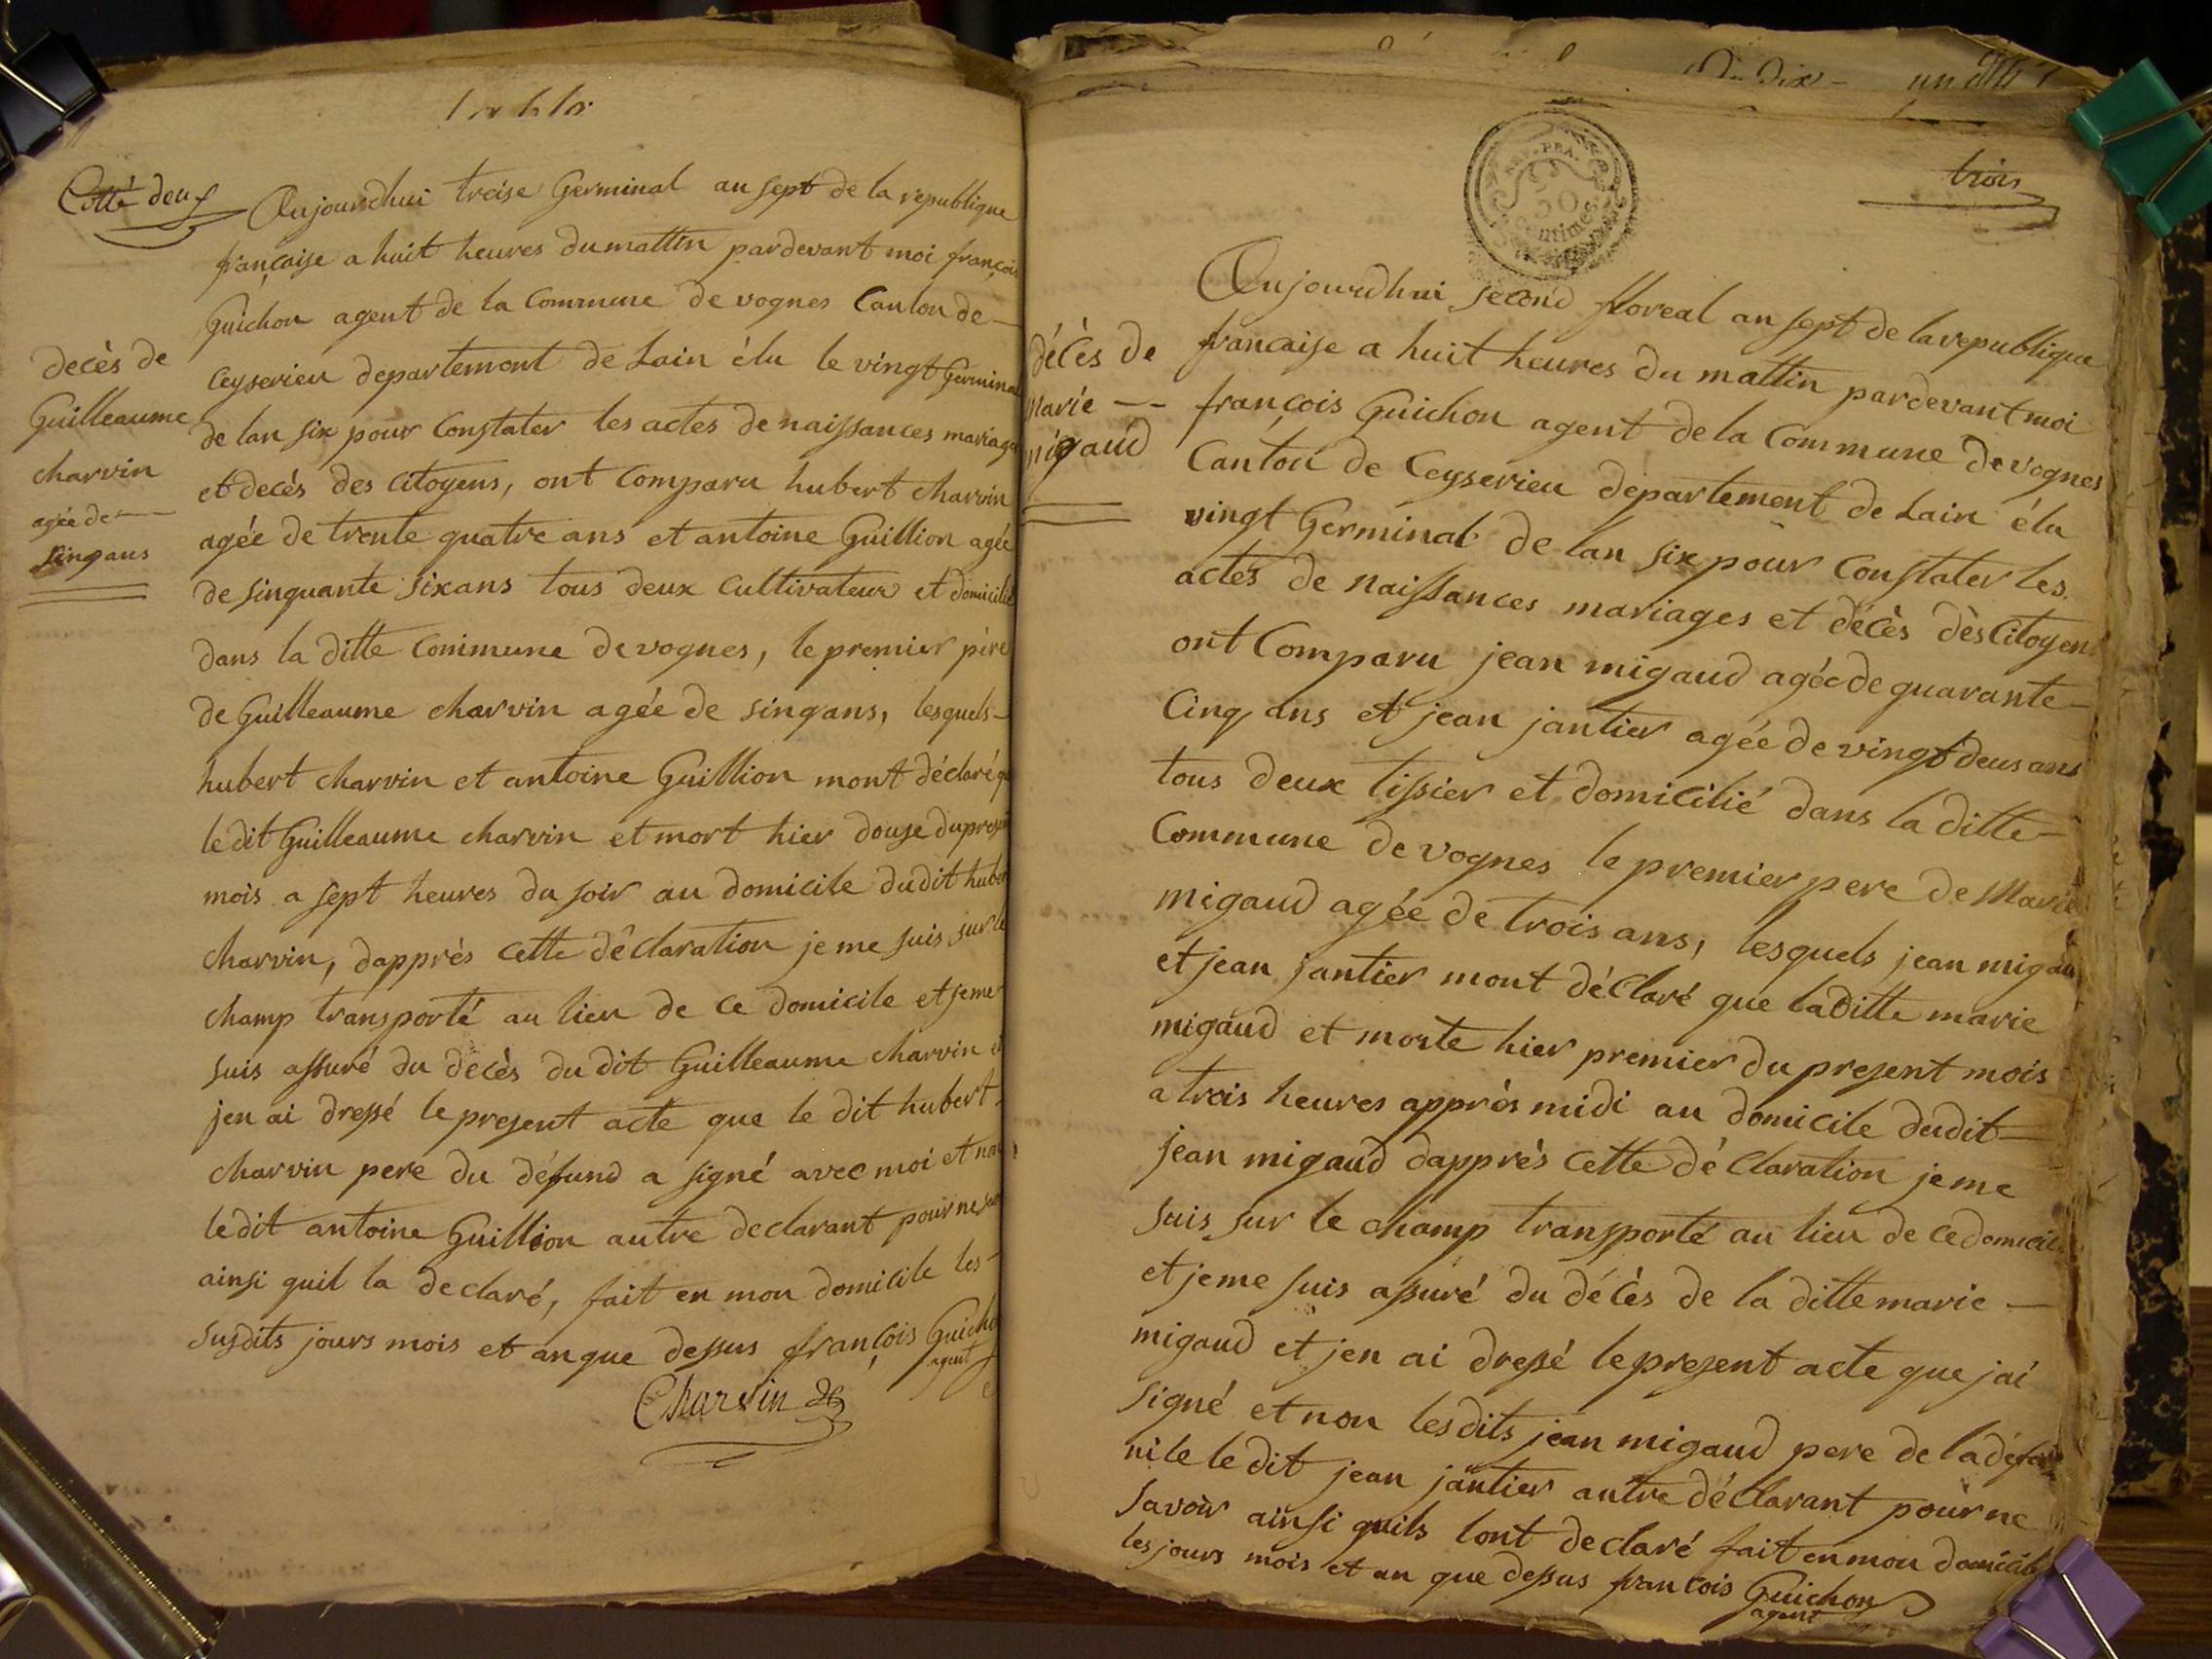 Cotté deux
Aujourdhui treise Germinal an sept de la republique
française a huit heures du mattin pardevant moi françois
Guichon agent de la Commune de vognes Canton de
Ceyserieu departement de Lain élu le vingt Germinal
de lan six pour Constater les actes de naissances mariages
et decès des Citoyens, ont Comparu hubert charvin
agée de trente quatre ans et antoine Guillion agée
de sinquante six ans tous deux Cultivateur et domicilié
dans la ditte Commune de vognes, le premier père
de Guilleaume charvin agée de sinq ans, lesquels
hubert charvin et antoine Guillion mont déclaré que
le dit Guilleaume charvin et mort hier douse du present
mois a sept heures du soir au domicile dudit hubert
Charvin, dapprès Cette déclaration je me suis sur le
champ transporté au lieu de ce domicile et je me
suis assuré du decès du dit Guilleaume charvin et
jen ai dressé le present acte que le dit hubert
charvin pere du défund a signé avec moi et non
le dit antoine Guillion autre declarant pour ne
ainsi quil la declaré, fait en mon domicile les
susdits jours mois et an que dessus françois Guichon
agent
Charvin
decès de
Guilleaume
charvin
agée de
sinq ans
REP. FRA.
50
Centimes
trois
Aujourdhui second floreal an sept de la republique
francaise a huit heures du mattin pardevant moi
françois Guichon agent de la Commune de vognes
Canton de Ceyserieu departement de Lain élu
vingt Germinal de lan six pour Constater les
actes de naissances mariages et décès dès Citoyens
ont Comparu jean migaud agée de quarante
Cinq ans et jean jantier agée de vingt deus ans
tous deux tissier et domicilié dans la ditte
Commune de vognes le premier pere de Marie
migaud agée de trois ans, lesquels jean migaud
et jean jantier mont déClaré que la ditte marie
migaud et morte hier premier du present mois
a trois heures apprès midi au domicile dudit
jean migaud dapprès Cette déClaration je me
suis sur le champ transporté au lieu de ce domicile
et je me suis assuré du décès de la ditte marie
migaud et jen ai dressé le present acte que jai
signé et non lesdits jean migaud pere de la
ni le le dit jean jantier autre déClarant pour ne
savoir ainsi quils lont declaré fait en mon domicile
les jours mois et an que dessus francois Guichon
agent
décès de
Marie
migaud